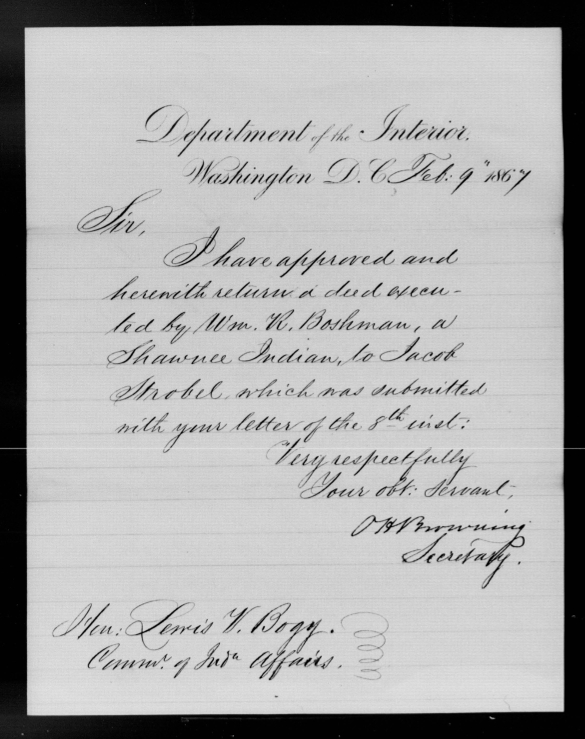 Department of the Interior.
Washington D. C. Feb: 9" 1867
Sir,
I have approved and
herewith return a deed execu-
ted by Wm. K. Boshman, a
Shawnee Indian, to Jacob
Strobel, which was submitted
with your letter of the 8th inst:
Very respectfully
Your obt: servant,
O H Browning
Secretary.
Hon: Lewis V. Bogy.
Commr. of Inda Affairs.